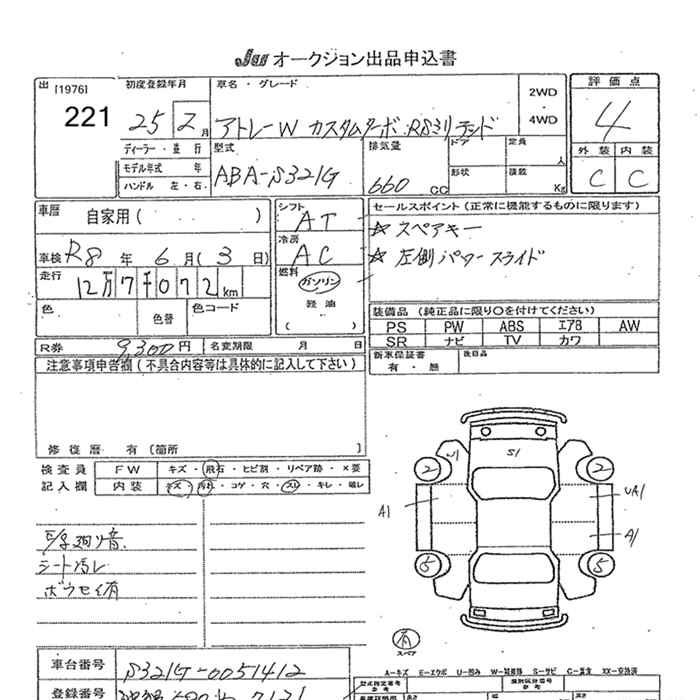 Ju オークション出品申込書
出 [1976] 221
初度登録年月 25 2月
車名・グレード アトレーW カスタムターボ RSリミテッド
2WD ・ 4WD
評価点 4
外装 内装
C C
ディーラー・並行
モデル年式 年
ハンドル 左・右
型式 ABA-S321G
排気量 660 CC
ドア 定員 人
形状 積載 Kg
車歴 自家用 ( )
車検 R8 年 6 月 ( 3 日)
走行 12万7千072 km
色 色替 色コード
シフト AT
冷房 AC
燃料 ガソリン
軽油
( )
セールスポイント (正常に機能するものに限ります)
☆ スペアキー
☆ 左側パワースライド
装備品 (純正品に限り○を付けてください)
PS PW ABS エアB AW
SR ナビ TV カワ
新車保証書 有・無
後日品
R券 9,300円 名変期限 月 日
注意事項申告欄 (不具合内容等は具体的に記入して下さい)
修復歴 有 [箇所 ]
検査員 FW キズ・飛石・ヒビ割・リペア跡・×要
記入欄 内装 キズ・汚れ・コゲ・穴・スレ・キレ・破レ
シート汚レ
ボウセイ有
2 W1 S1 2
A1 UA1
A1
6 5
有 スペア
A-キズ E-エクボ U-凹み W-補修跡 S-サビ C-腐食 XX-交換済
車台番号 S321G-0051412
登録番号